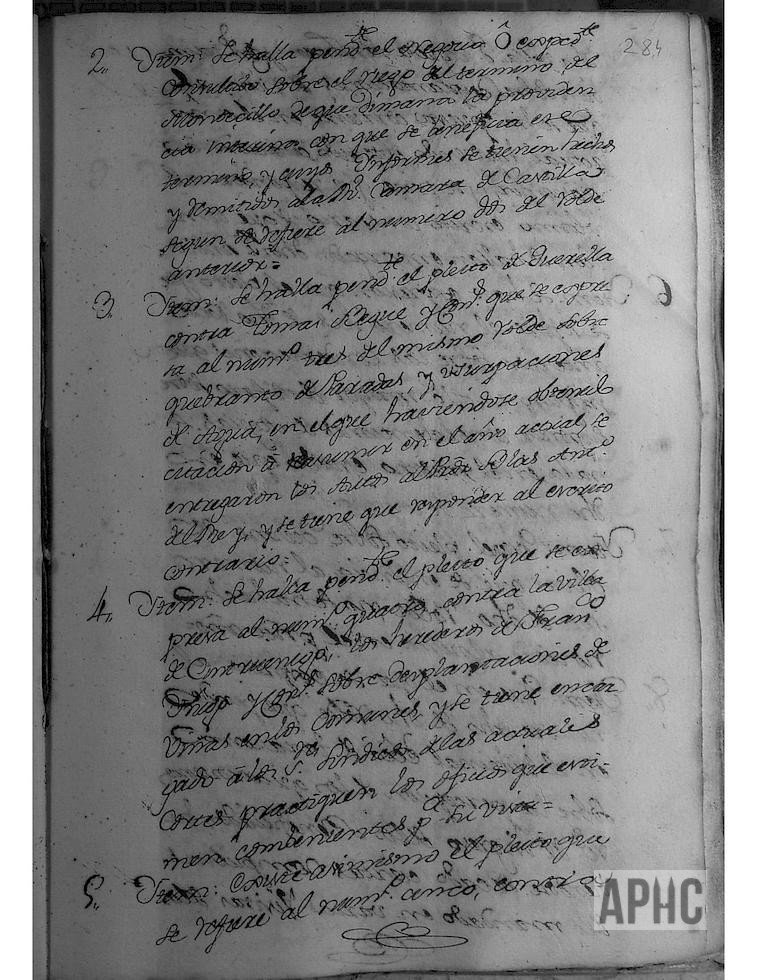 284
2. Yttem: Se halla pend.te el negocio ô exped.te
Consultivo sobre el riego del termino del
Montecillo de que dimana la providen
cia interina con que se beneficia este
termino, y cuyos Informes se tienen hechos
y remitidos a la R.l Camara de Castilla
segun se refiere al numero dos del Rolde
anterior=
3. Yttem: Se halla pend.te el pleito de Querella
contra Tomas Segue y Cons. que se expre
sa al num.o tres del mismo Rolde sobre
quebranto de Paradas, y usurpaciones
de Agua, en el que haviendose obtenido
citacion a resumir en el año actual, se
entregaron los Autos al Prôr Blas Ant.o
del Rey, y se tiene que responder al escrito
contrario.
4. Yttem: Se halla pend.te el pleito que se ex-
presa al num.o quatro contra la Villa
de Cintruenigo, los herederos de Fran.co
Yñigo y Cons. sobre desplantaciones de
Viñas en los Comunes, y se tiene encar
gado â los S.res Sindicos de las actuales
Cortes practiquen los oficios que esti-
men combenientes p.a su vista=
5. Yttem: Existe asimismo el pleito que
se refiere al num.o cinco, contra
6
APHC